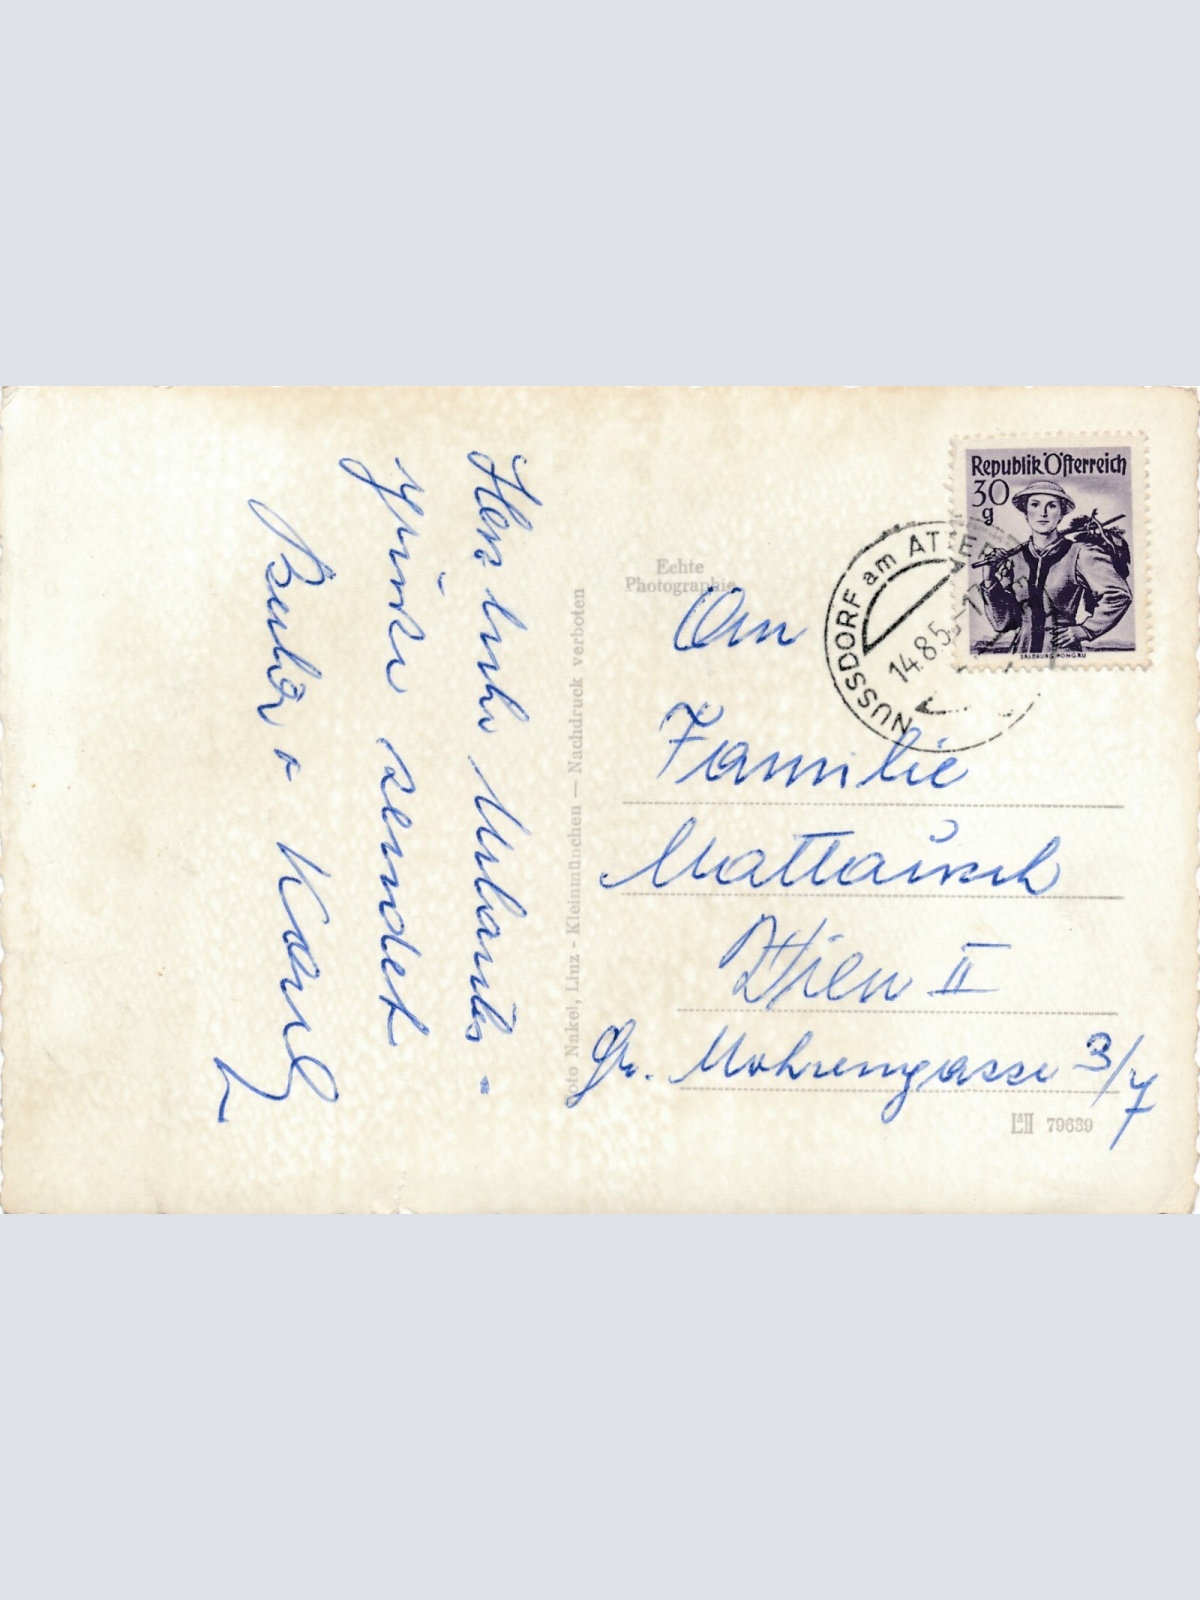 Herzliche Urlaubs-
grüsse sendet
+ Karl
Echte
Photographie
Foto Nakel, Linz - Kleinmünchen — Nachdruck verboten
Republik Österreich
30
g
SALZBURG, PONGAU
NUSSDORF am ATTERSEE
14.8.5
An
Familie
Mattausch
Wien II
Gr. Mohrengasse 3/7
79639